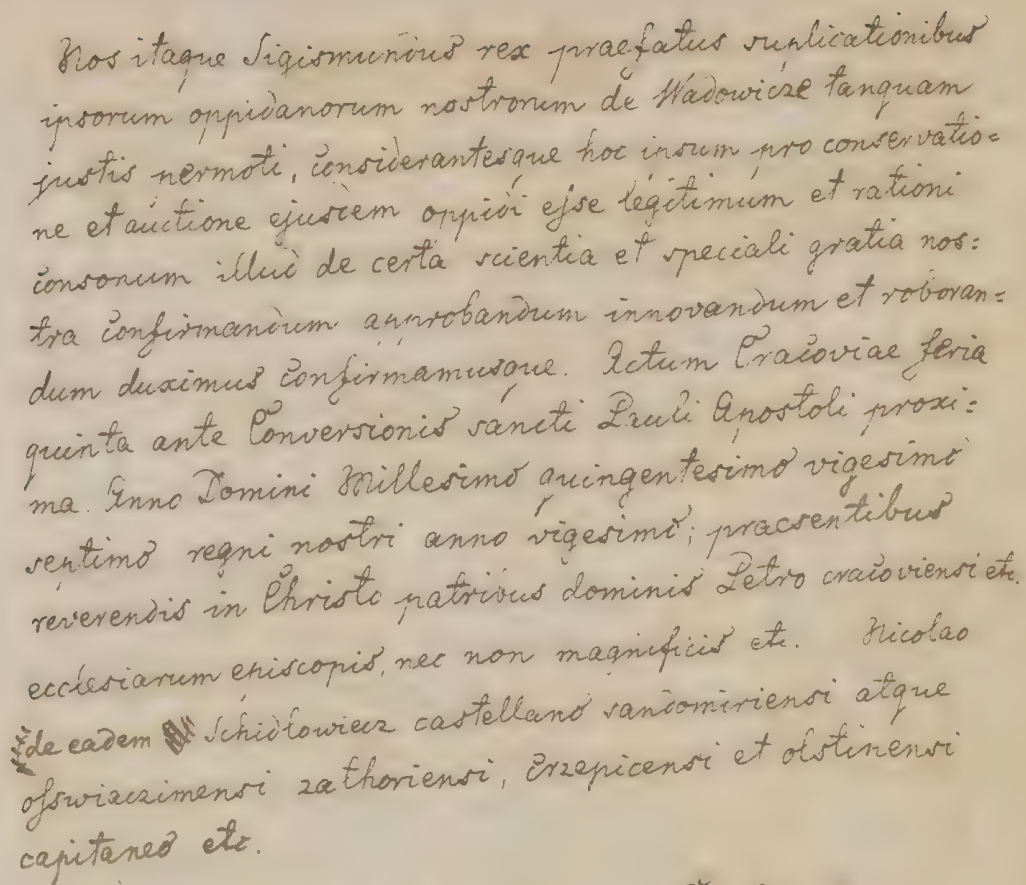 Nos itaque Sigismundus rex praefatus suplicationibus
ipsorum oppidanorum nostrorum de Wadowicze tanquam
justis permoti, considerantesque hoc ipsum pro conservatio=
ne et auctione ejusdem oppidi esse legitimum et rationi
consonum illud de certa scientia et speciali gratia nos=
tra confirmandum approbandum innovandum et roboran=
dum duximus confirmamusque. Actum Cracoviae feria
quinta ante Conversionis sancti Pauli Apostoli proxi=
ma. Anno Domini Millesimo quingentesimo vigesimo
septimo regni nostri anno vigesimo; praesentibus
reverendis in Christo patribus dominis Petro cracoviensi etc.
ecclesiarum episcopis, nec non magnificis etc. Nicolao
de eadem Schidłowiecz castellano sandomiriensi atque
osswiaczimensi zathoriensi, crzepicensi et olstinensi
capitaneo etc.